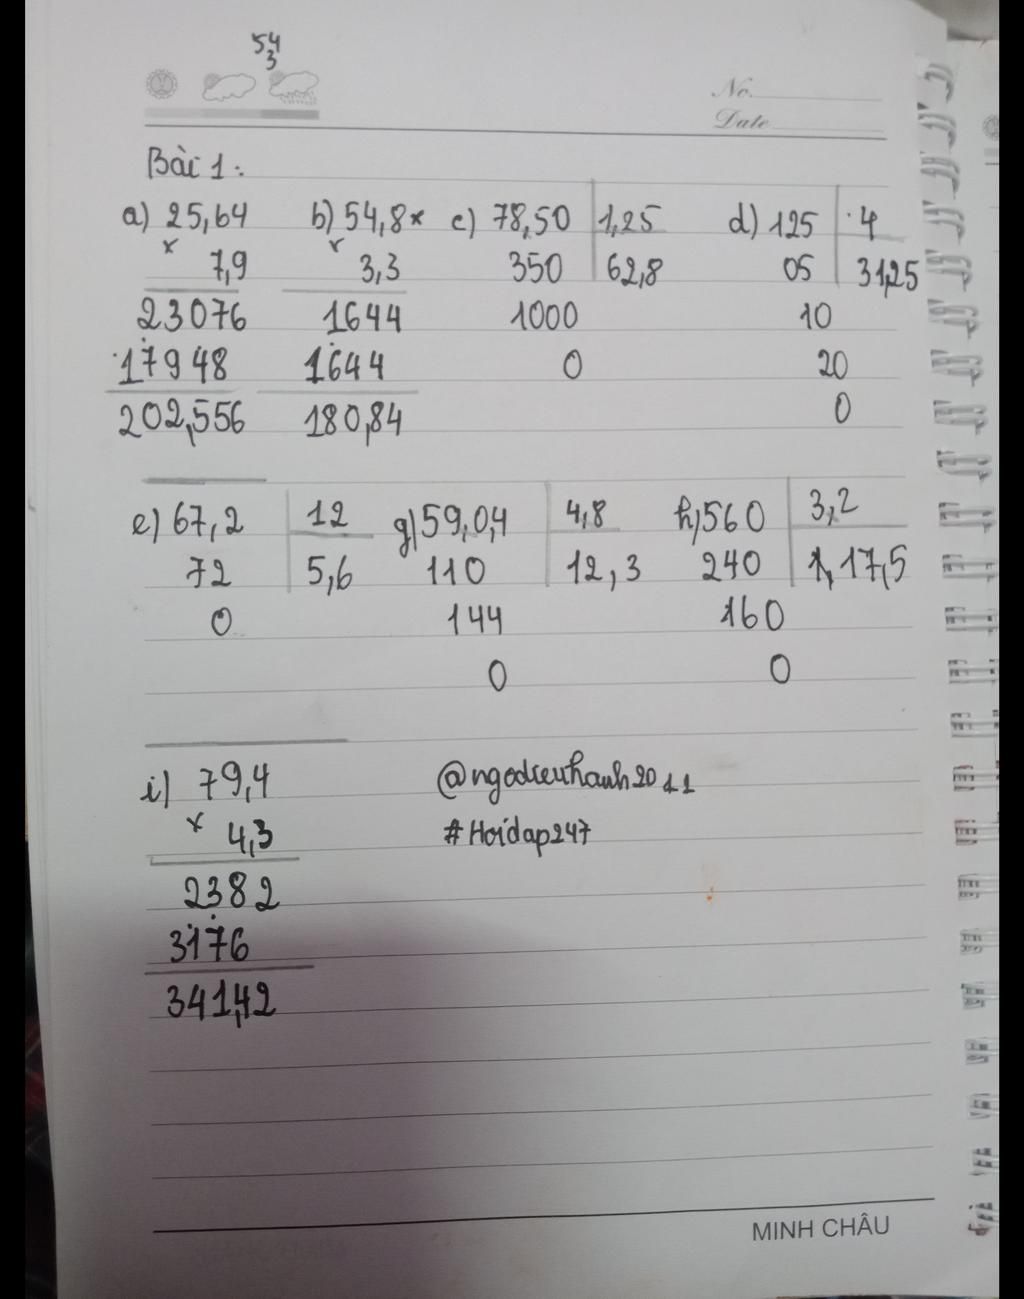 54
3
No.
Date
Bài 1:
a) 25,64 b) 54,8× c) 78,50 1,25 d) 125 4
× 7,9 × 3,3 350 62,8 05 31,25
23076 1644 1000 10
17948 1644 0 20
202,556 180,84 0
e) 67,2 12 g) 59,0,4 4,8 h) 560 3,2
72 5,6 110 12,3 240 17,5
0 144 160
0 0
i) 79,4 @ngodieuhanh2011
× 4,3 #Hoidap247
2382
3176
341,42
MINH CHÂU